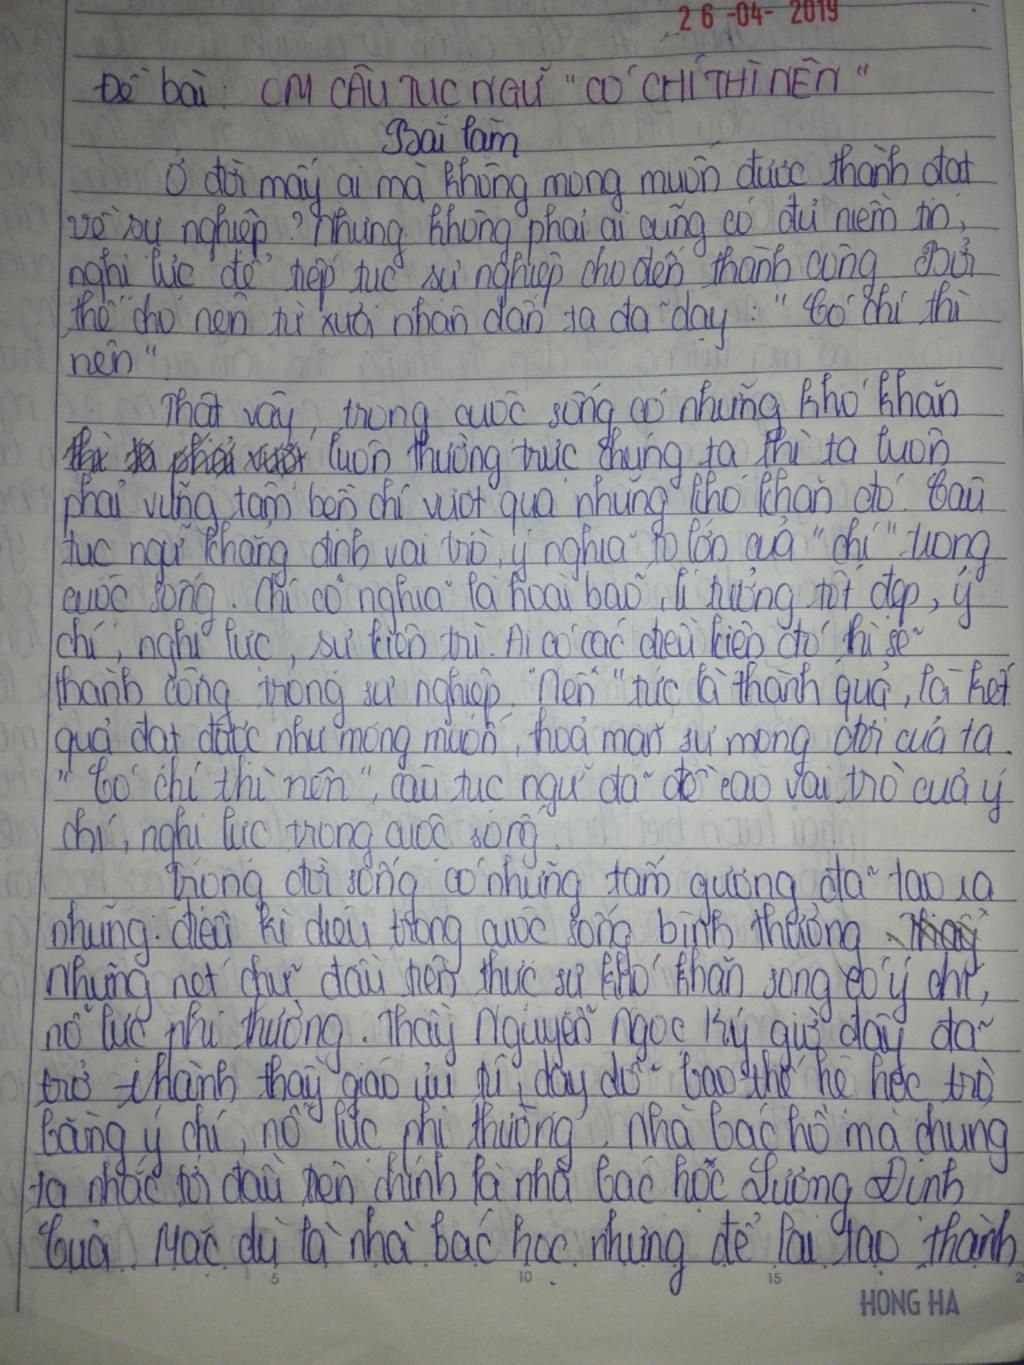 26-04-2019
Đề bài: CM CÂU TỤC NGỮ "CÓ CHÍ THÌ NÊN"
Bài làm
Ở đời mấy ai mà không mong muốn được thành đạt
về sự nghiệp? Nhưng không phải ai cũng có đủ niềm tin,
nghị lực để tiếp tục sự nghiệp cho đến thành công. Bởi
thế cho nên từ xưa nhân dân ta đã dạy: "Có chí thì
nên"
Thật vậy, trong cuộc sống có những khó khăn
luôn thường trực chúng ta thì ta luôn
phải vững tâm bền chí vượt qua những khó khăn đó. Câu
tục ngữ khẳng định vai trò, ý nghĩa to lớn của "chí" trong
cuộc sống. Chí có nghĩa là hoài bão, lí tưởng tốt đẹp, ý
chí, nghị lực, sự kiên trì. Ai có các điều kiện đó thì sẽ
thành công trong sự nghiệp. "Nên" tức là thành quả, là kết
quả đạt được như mong muốn, thoả mãn sự mong đợi của ta.
"Có chí thì nên", câu tục ngữ đã đề cao vai trò của ý
chí, nghị lực trong cuộc sống.
Trong đời sống có những tấm gương đã tạo ra
những điều kì diệu trong cuộc sống bình thường.
Những nét chữ đầu tiên thực sự khó khăn song có ý chí,
nỗ lực phi thường. Thầy Nguyễn Ngọc Ký giờ đây đã
trở thành thầy giáo ưu tú, dạy dỗ bao thế hệ học trò
bằng ý chí, nỗ lực phi thường. Nhà bác hồ mà chúng
ta nhắc tới đầu tiên chính là nhà bác học Lương Định
Của. Mặc dù là nhà bác học nhưng để lai tạo thành
5 10 15
HONG HA